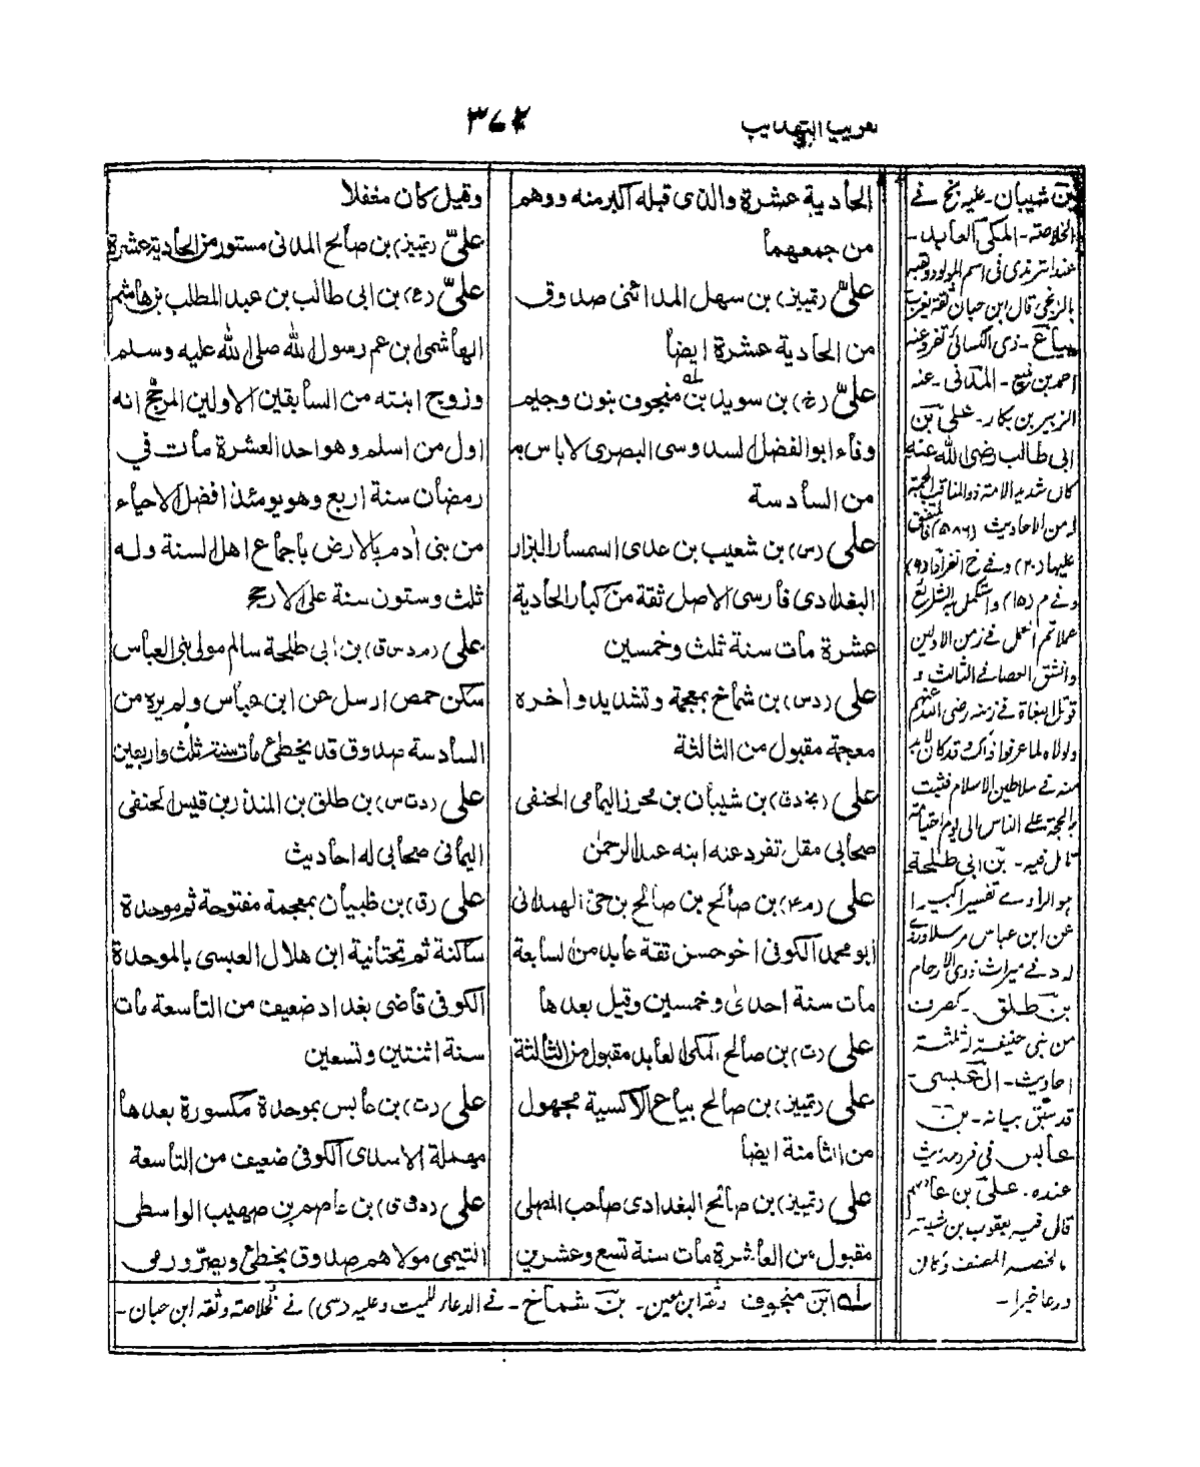 تقريب التهذيب
٣٧٢
الحادية عشرة والذى قبله اكبر منه ووهم
من جمعهما
علىّ (تمييز) بن سهل المدائنى صدوق
من الحادية عشرة ايضاً
علىّ (خ) بن سويد بن منجوف بنون وجيم
وفاء ابو الفضل السدوسى البصرى لا باس به
من السادسة
على (س) بن شعيب بن عدى السمسار البزار
البغدادى فارسى الاصل ثقة من كبار الحادية
عشرة مات سنة ثلث وخمسين
على (دس) بن شماخ بمعجمة وتشديد واخره
معجمة مقبول من الثالثة
على (بخ دق) بن شيبان بن محرز اليمامى الحنفى
صحابى مقل تفرد عنه ابنه عبدالرحمٰن
على (م٤) بن صالح بن صالح بن حىّ الهمدانى
ابو محمد الكوفى اخو حسن ثقة عابد من السابعة
مات سنة احدى وخمسين وقيل بعدها
على (ت) بن صالح المكى العابد مقبول من الثالثة
على (تمييز) بن صالح بياع الاكسية مجهول
من الثامنة ايضاً
على (تمييز) بن صالح البغدادى صاحب المصلى
مقبول من العاشرة مات سنة تسع وعشرين
وقيل كان مغفلا
علىّ (تمييز) بن صالح المدنى مستور من الحادية عشرة
علىّ (ع) بن ابى طالب بن عبد المطلب بن هاشم
الهاشمى ابن عم رسول الله صلى الله عليه وسلم
وزوج ابنته من السابقين الاولين المرجح انه
اول من اسلم وهو احد العشرة مات في
رمضان سنة اربع وهو يومئذ افضل الاحياء
من بنى اٰدم بالارض باجماع اهل السنة وله
ثلث وستون سنة على الارجح
على (م د س ق) بن ابى طلحة سالم مولى بنى العباس
سكن حمص ارسل عن ابن عباس ولم يره من
السادسة صدوق قد يخطئ مات سنة ثلث واربعين
على (د ت س) بن طلق بن المنذر بن قيس الحنفى
اليمانى صحابى له احاديث
على (ق) بن ظبيان بمعجمة مفتوحة ثم موحدة
ساكنة ثم تحتانية ابن هلال العبسى بالموحدة
الكوفى قاضى بغداد ضعيف من التاسعة مات
سنة اثنتين وتسعين
على (ت) بن عابس بموحدة مكسورة بعدها
مهملة الاسدى الكوفى ضعيف من التاسعة
على (د ق ت) بن عاصم بن صهيب الواسطى
التيمى مولاهم صدوق يخطئ ويصرّ ورمى
بن شيبان - عليه بخ في
الخلاصة - المكى العابد -
عند الترمذى فى اسم المولود
قال ابن حبان ثقة يغرب
بياع -
احمد بن منيع - المدنى - عنه
الزبير بن بكار - على بن
ابى طالب رضى الله عنه
كان شديد الامة ذو المناقب الجمة
له من الاحاديث (٥٨٦) اتفق
عليها (٢٠) وفي خ انفراد (٩)
وفي م (١٥)
وانشق العصا في الثالث و
منه في سلاطين الاسلام فثبت
قائل فيه - بن ابى طلحة
هو الراوى تفسيرا كبيرا
عن ابن عباس مرسلا وله
له د فى ميراث ذوى الارحام
بن طلق - كصرف
من بنى حنيفة له ثلثة
احاديث - العبسى -
قد سبق بيانه - بن
عابس فى فرد حديث
عنده - على بن عاصم
قال فيه يعقوب بن شيبة
ورعا خيرا -
له ابن منجوف وثقه ابن معين - بن شماخ - في الدعاء للميت وعليه (سى) في الخلاصة وثقه ابن حبان -